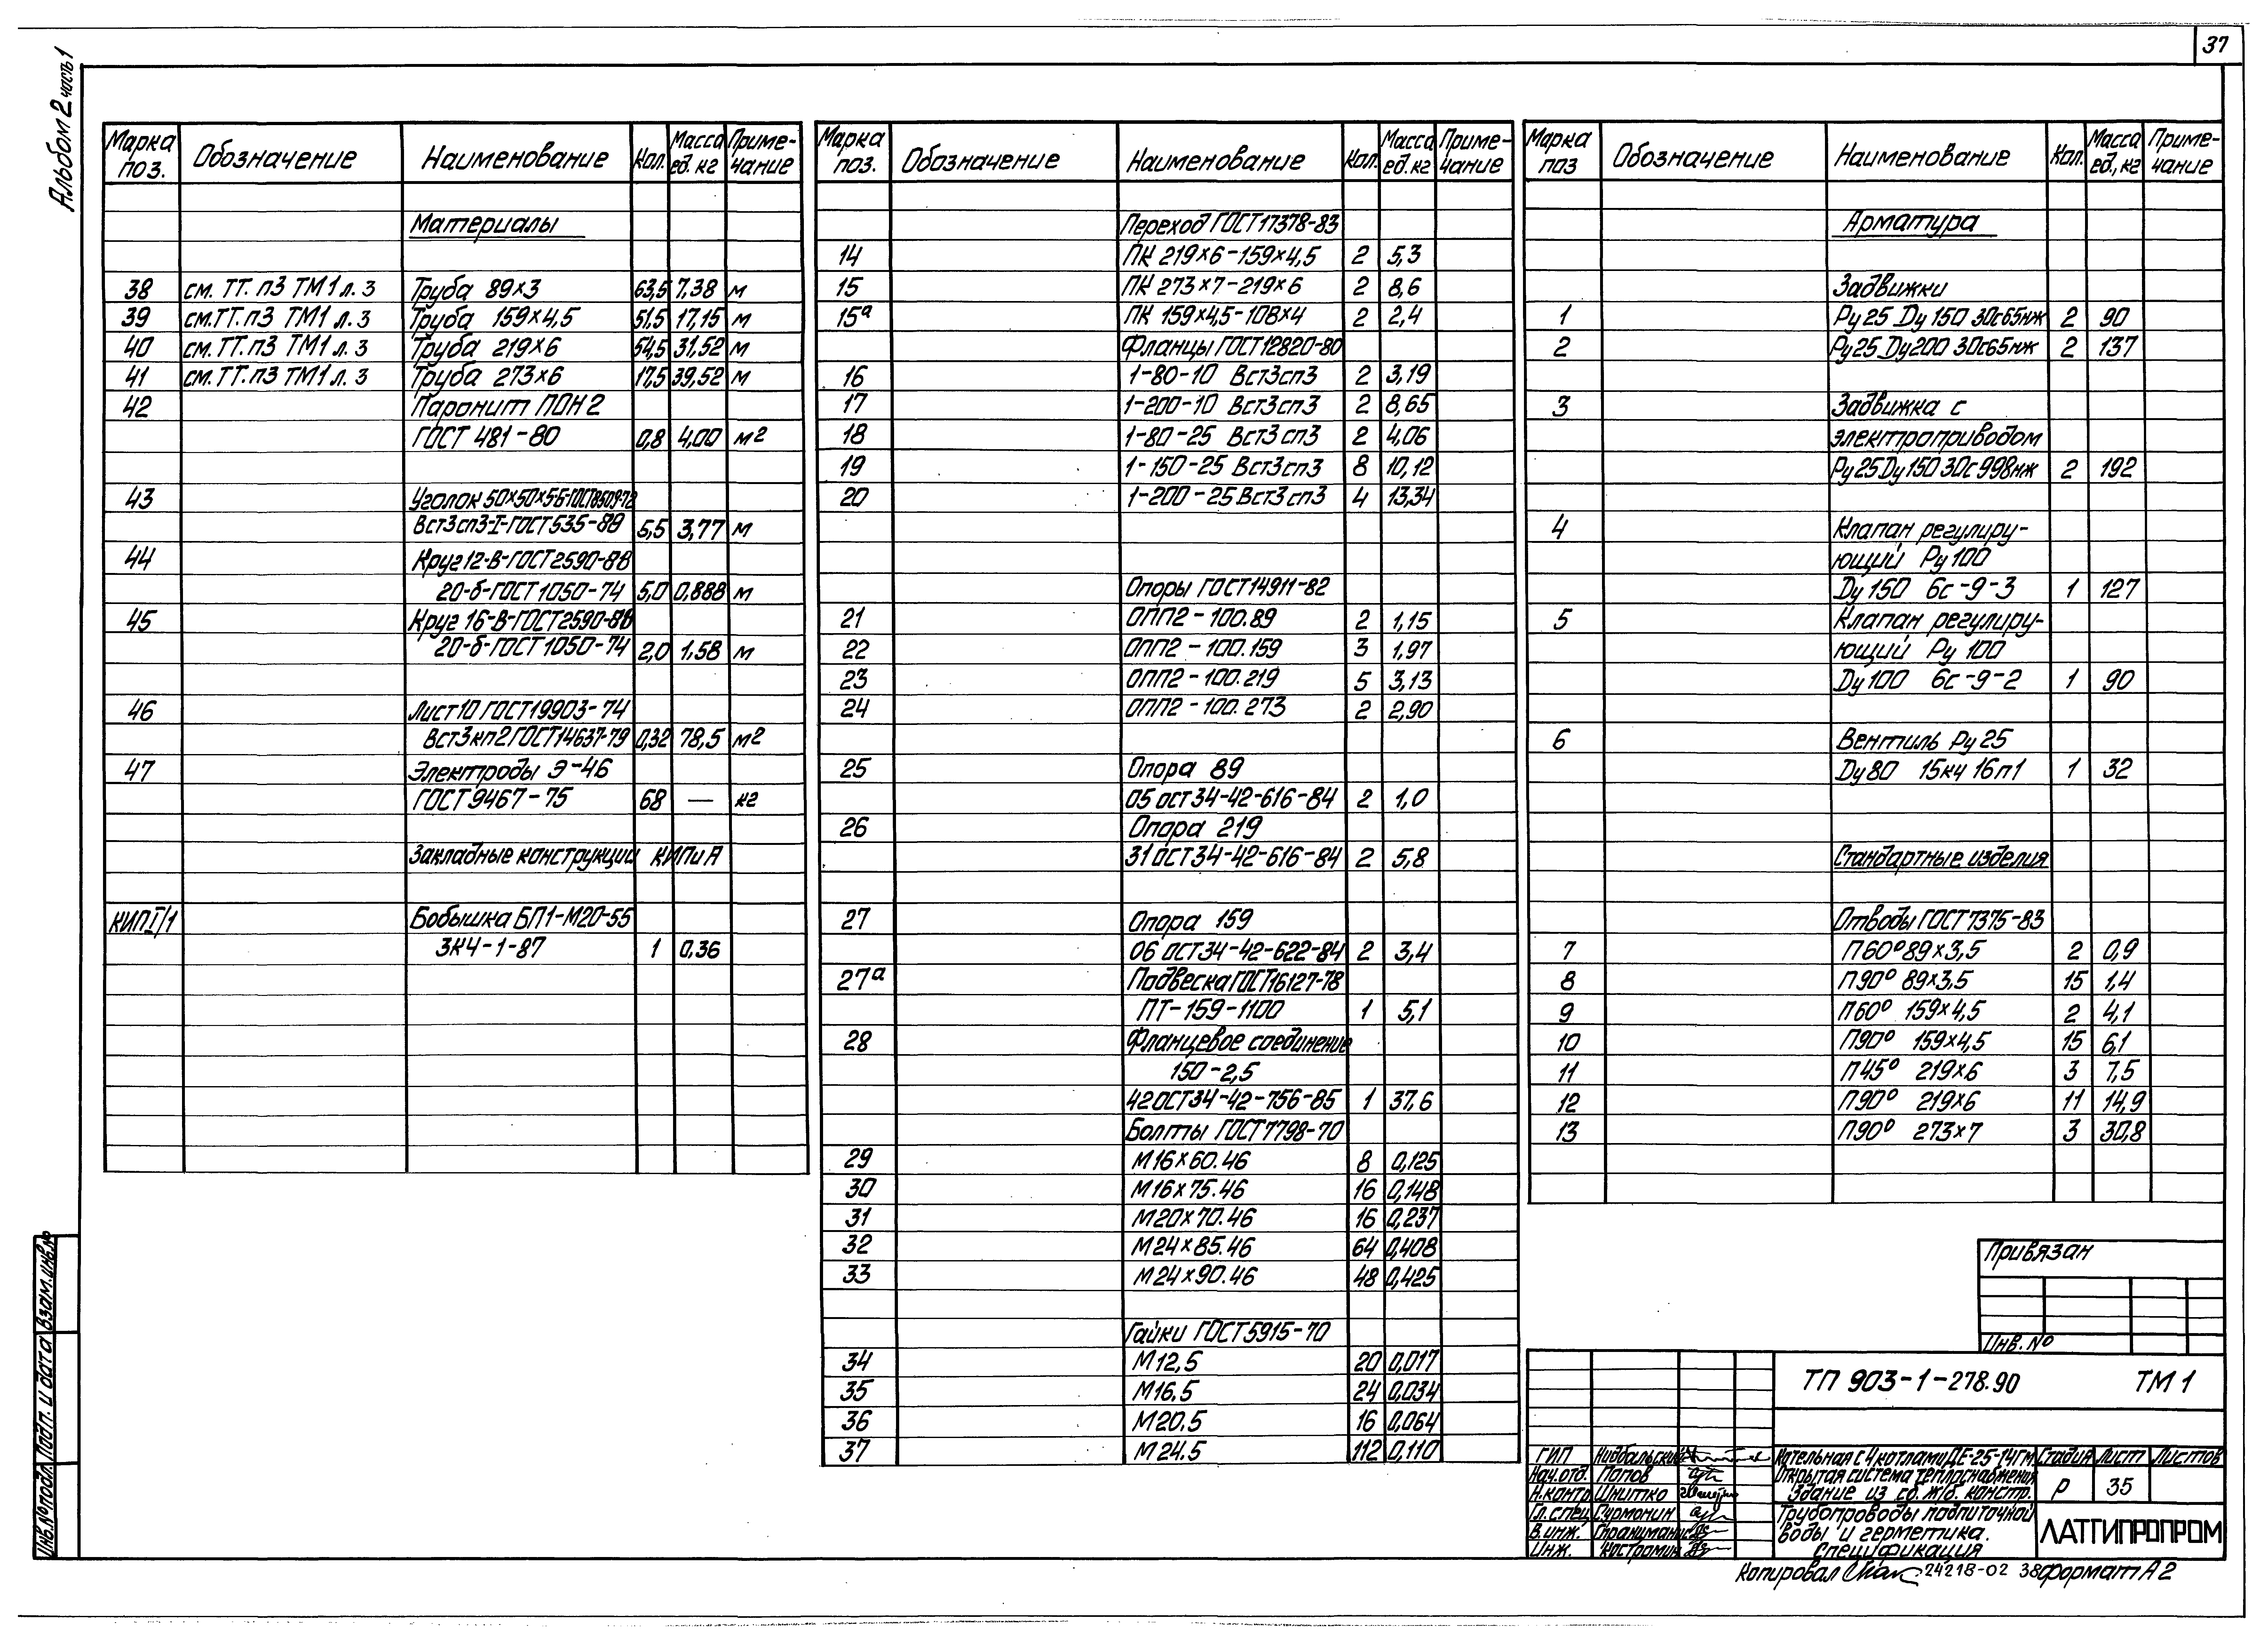 37
Альбом 2 часть 1
Марка поз. Обозначение Наименование Кол. Масса ед. кг Приме-чание
Материалы
38 см. ТТ. п3 ТМ1 л. 3 Труба 89×3 63,5 7,38 м
39 см. ТТ. п3 ТМ1 л. 3 Труба 159×4,5 51,5 17,15 м
40 см. ТТ. п3 ТМ1 л. 3 Труба 219×6 54,5 31,52 м
41 см. ТТ. п3 ТМ1 л. 3 Труба 273×6 17,5 39,52 м
42 Паронит ПОН2
ГОСТ 481-80 0,8 4,00 м2
43 Уголок 50×50×5-Б-ГОСТ8509-72
Вст3сп3-I-ГОСТ535-88 5,5 3,77 м
44 Круг12-В-ГОСТ2590-88
20-б-ГОСТ1050-74 5,0 0,888 м
45 Круг 16-В-ГОСТ2590-88
20-б-ГОСТ1050-74 2,0 1,58 м
46 Лист10 ГОСТ19903-74
Вст3кп2ГОСТ14637-79 0,32 78,5 м2
47 Электроды Э-46
ГОСТ9467-75 68 — кг
Закладные конструкции КИПиА
КИПI/1 Бобышка БП1-М20-55
ЗК4-1-87 1 0,36
Марка поз. Обозначение Наименование Кол. Масса ед. кг Приме-чание
Переход ГОСТ17378-83
14 ПК 219×6-159×4,5 2 5,3
15 ПК 273×7-219×6 2 8,6
15а ПК 159×4,5-108×4 2 2,4
Фланцы ГОСТ12820-80
16 1-80-10 Вст3сп3 2 3,19
17 1-200-10 Вст3сп3 2 8,65
18 1-80-25 Вст3сп3 2 4,06
19 1-150-25 Вст3сп3 8 10,12
20 1-200-25 Вст3сп3 4 13,34
Опоры ГОСТ14911-82
21 ОПП2-100.89 2 1,15
22 ОПП2-100.159 3 1,97
23 ОПП2-100.219 5 3,13
24 ОПП2-100.273 2 2,90
25 Опора 89
05 ост34-42-616-84 2 1,0
26 Опора 219
31 ост34-42-616-84 2 5,8
27 Опора 159
06 ост34-42-622-84 2 3,4
27а Подвеска ГОСТ16127-78
ПТ-159-1100 1 5,1
28 Фланцевое соединение
150-2,5
42ОСТ34-42-756-85 1 37,6
Болты ГОСТ7798-70
29 М16×60.46 8 0,125
30 М16×75.46 16 0,148
31 М20×70.46 16 0,237
32 М24×85.46 64 0,408
33 М24×90.46 48 0,425
Гайки ГОСТ5915-70
34 М12,5 20 0,017
35 М16.5 24 0,034
36 М20.5 16 0,064
37 М24.5 112 0,110
Марка поз Обозначение Наименование Кол. Масса ед., кг Приме-чание
Арматура
Задвижки
1 Ру25 Ду150 30с65нж 2 90
2 Ру25 Ду200 30с65нж 2 137
3 Задвижка с
электроприводом
Ру25 Ду150 30с998нж 2 192
4 Клапан регулиру-
ющий Ру100
Ду150 6с-9-3 1 127
5 Клапан регулиру-
ющий Ру 100
Ду100 6с-9-2 1 90
6 Вентиль Ру25
Ду80 15кч 16п1 1 32
Стандартные изделия
Отводы ГОСТ17375-83
7 П60° 89×3,5 2 0,9
8 П90° 89×3,5 15 1,4
9 П60° 159×4,5 2 4,1
10 П90° 159×4,5 15 6,1
11 П45° 219×6 3 7,5
12 П90° 219×6 11 14,9
13 П90° 273×7 3 30,8
Привязан
Инв. №
ТП 903-1-278.90 ТМ1
ГИП Нидбальский
Нач.отд. Попов
Н.контр. Шнитко
Гл.спец. Сурмонин
В.инж.
Инж. Костромин
Котельная с 4 котлами ДЕ-25-14ГМ
Открытая система теплоснабжения
Здание из сб. ж/б. констр.
Стадия Лист Листов
Р 35
Трубопроводы подпиточной
воды и герметика.
Спецификация
ЛАТГИПРОПРОМ
Копировал 24218-02 38 формат А2
Инв.№подл. Подп. и дата Взам.инв.№